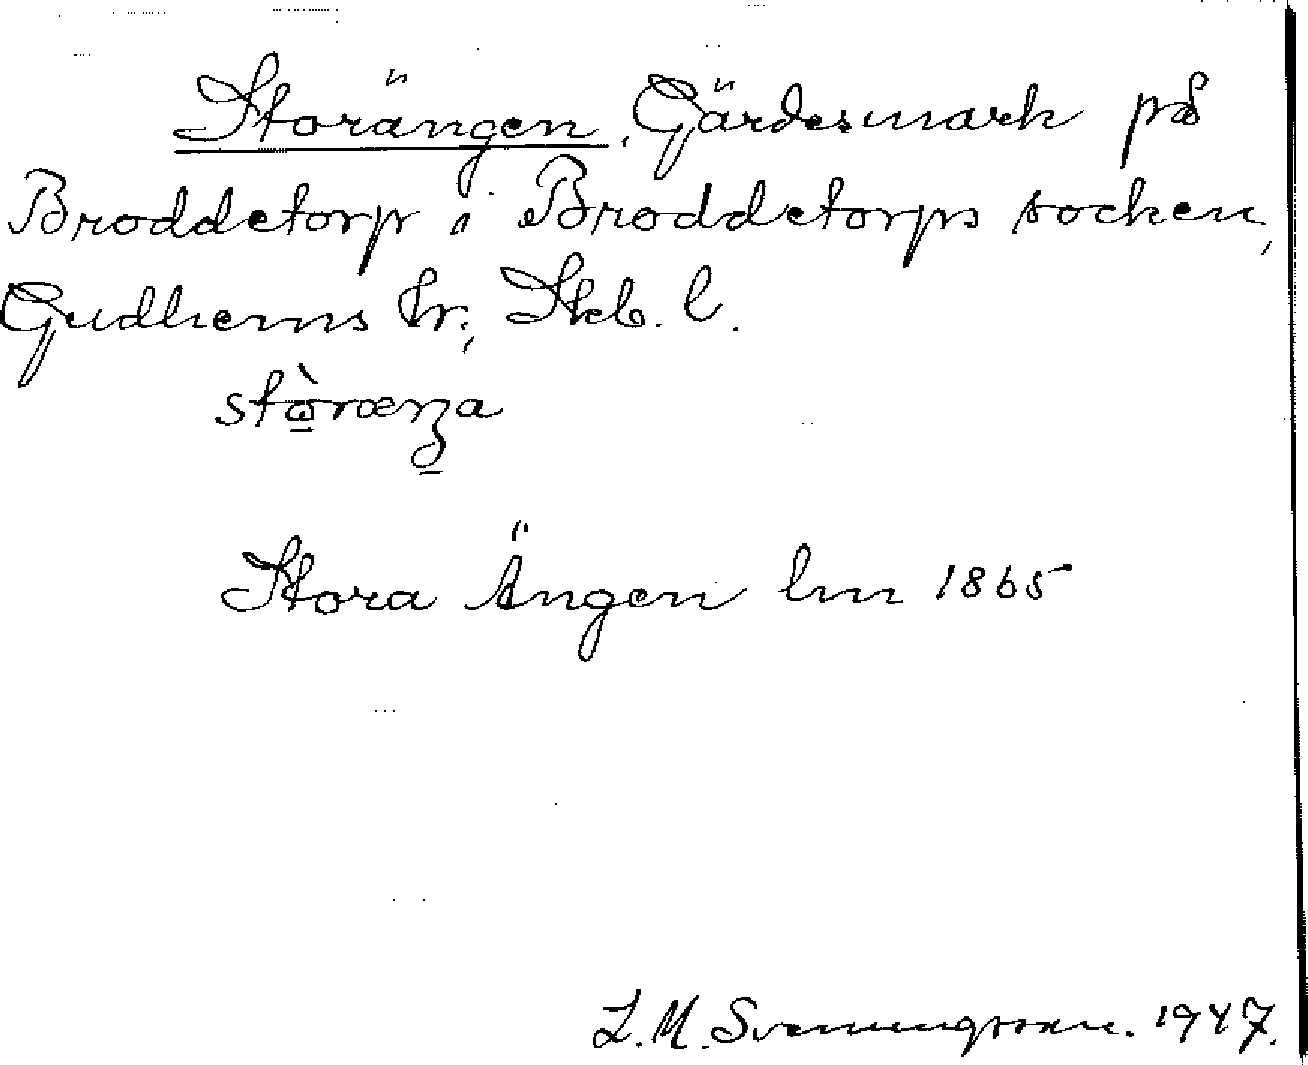 Storängen, Gärdesmark på
Broddetorp i Broddetorps socken,
Gudhems hr., Skb. l.
stòræŋa
Stora Ängen lm 1865
L. M. Svenungsson. 1947.